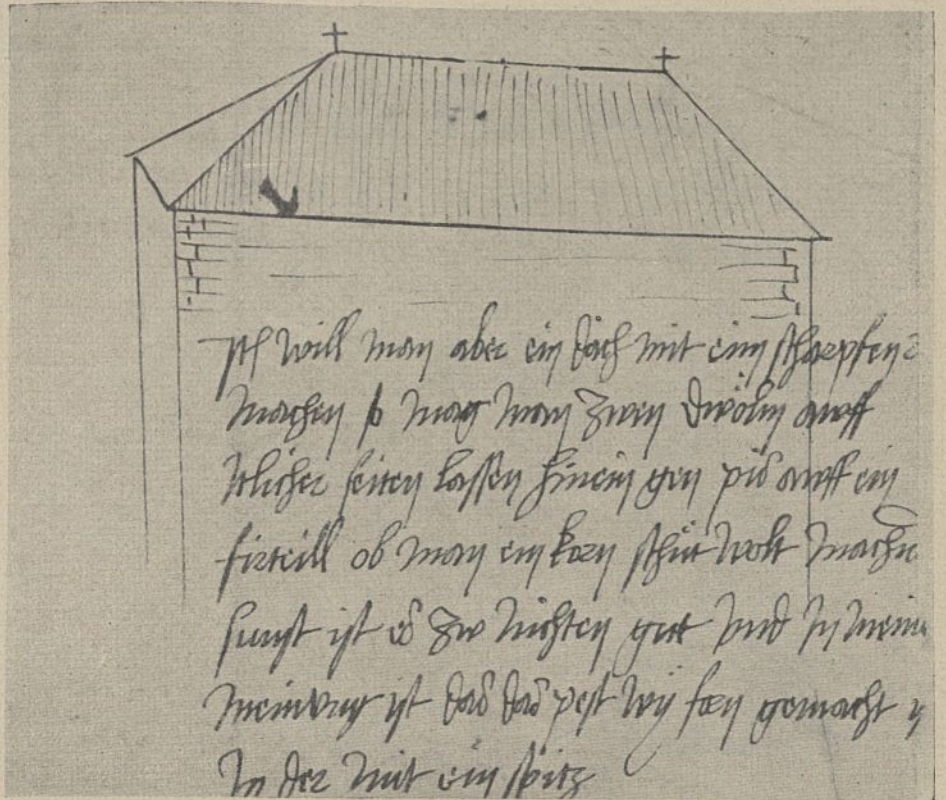 will man aber ein dach mit eim scharpfen
machen so mag man zwen auff
itlicher seiten lassen hinein gen pis auff ein
firteill ob man ein korn schüt wolt machen
sunst ist es zw nichten gutt vnd In meim
meinung ist das das pest wy forn gemacht
In der mit ein spitz